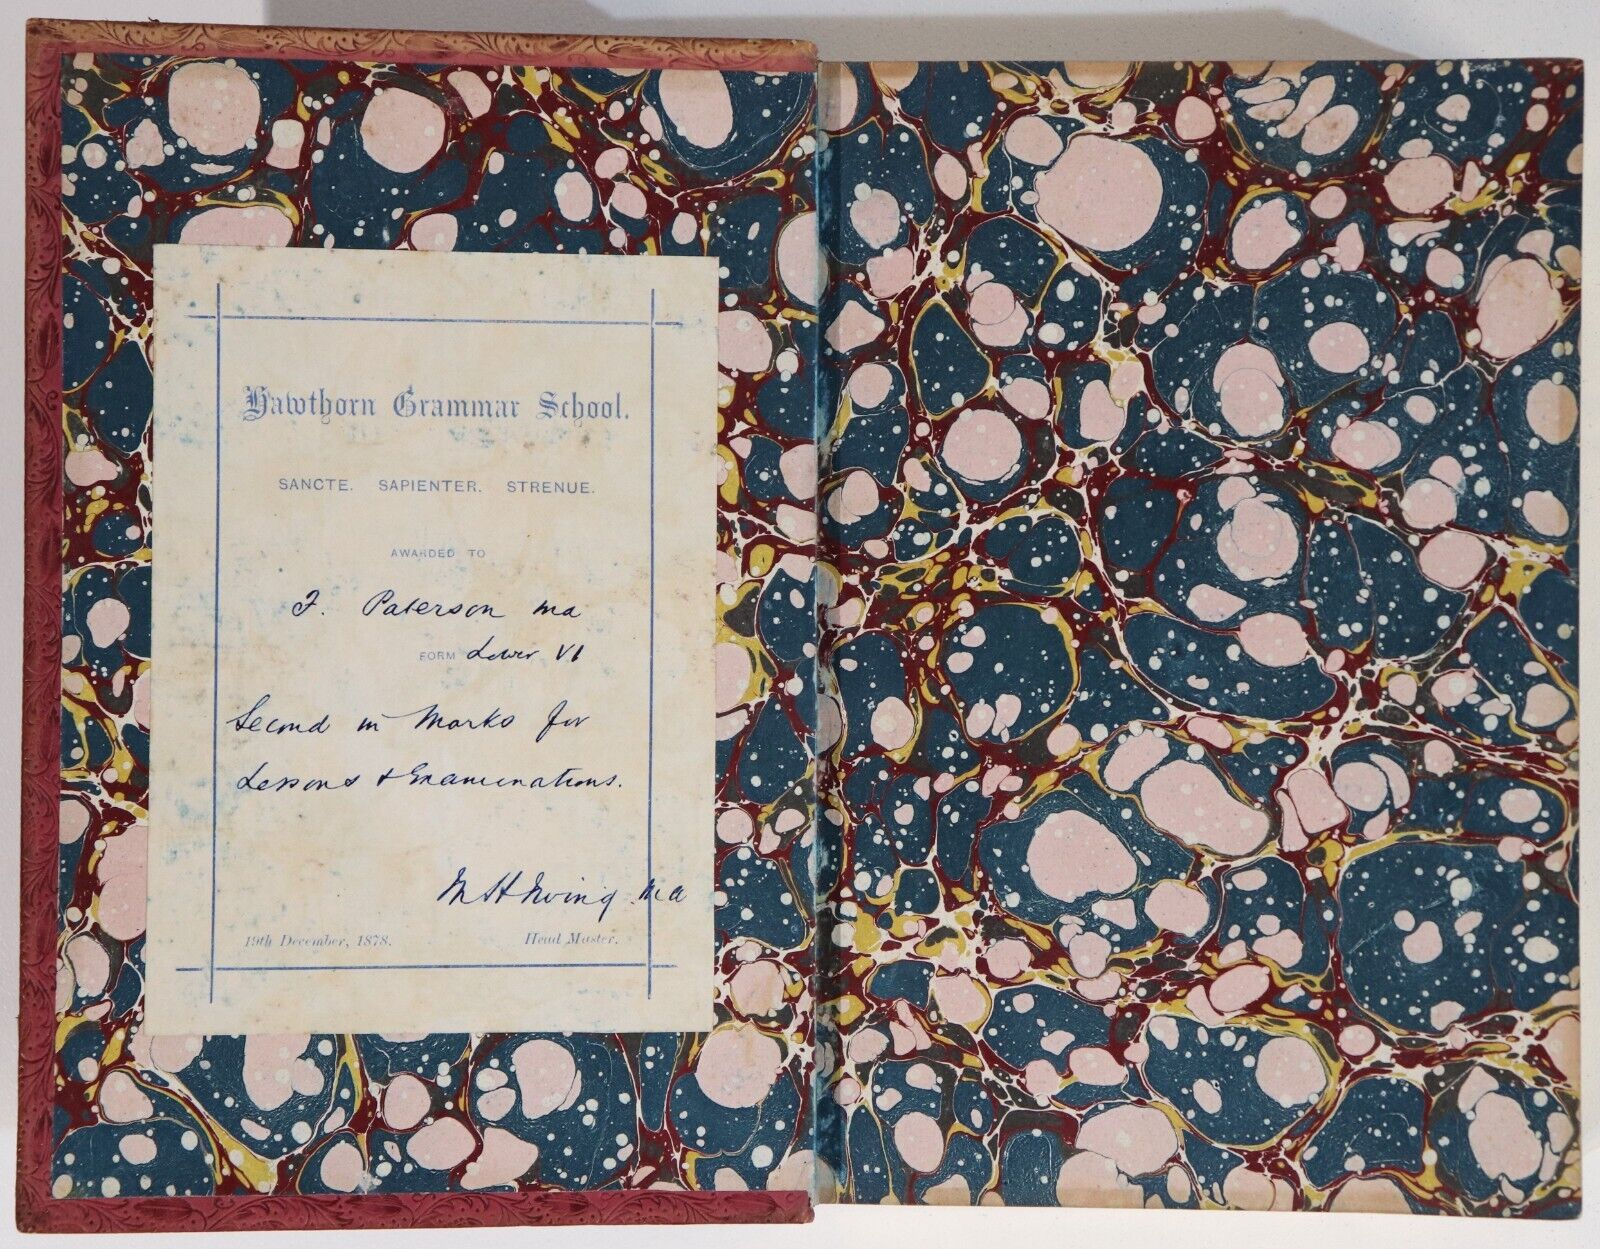 Hawthorn Grammar School.
SANCTE. SAPIENTER. STRENUE.
AWARDED TO
F. Paterson ma
FORM Lower VI
Second in Marks for
Lessons & Examinations.
M H Irving. M A
19th December, 1878. Head Master.